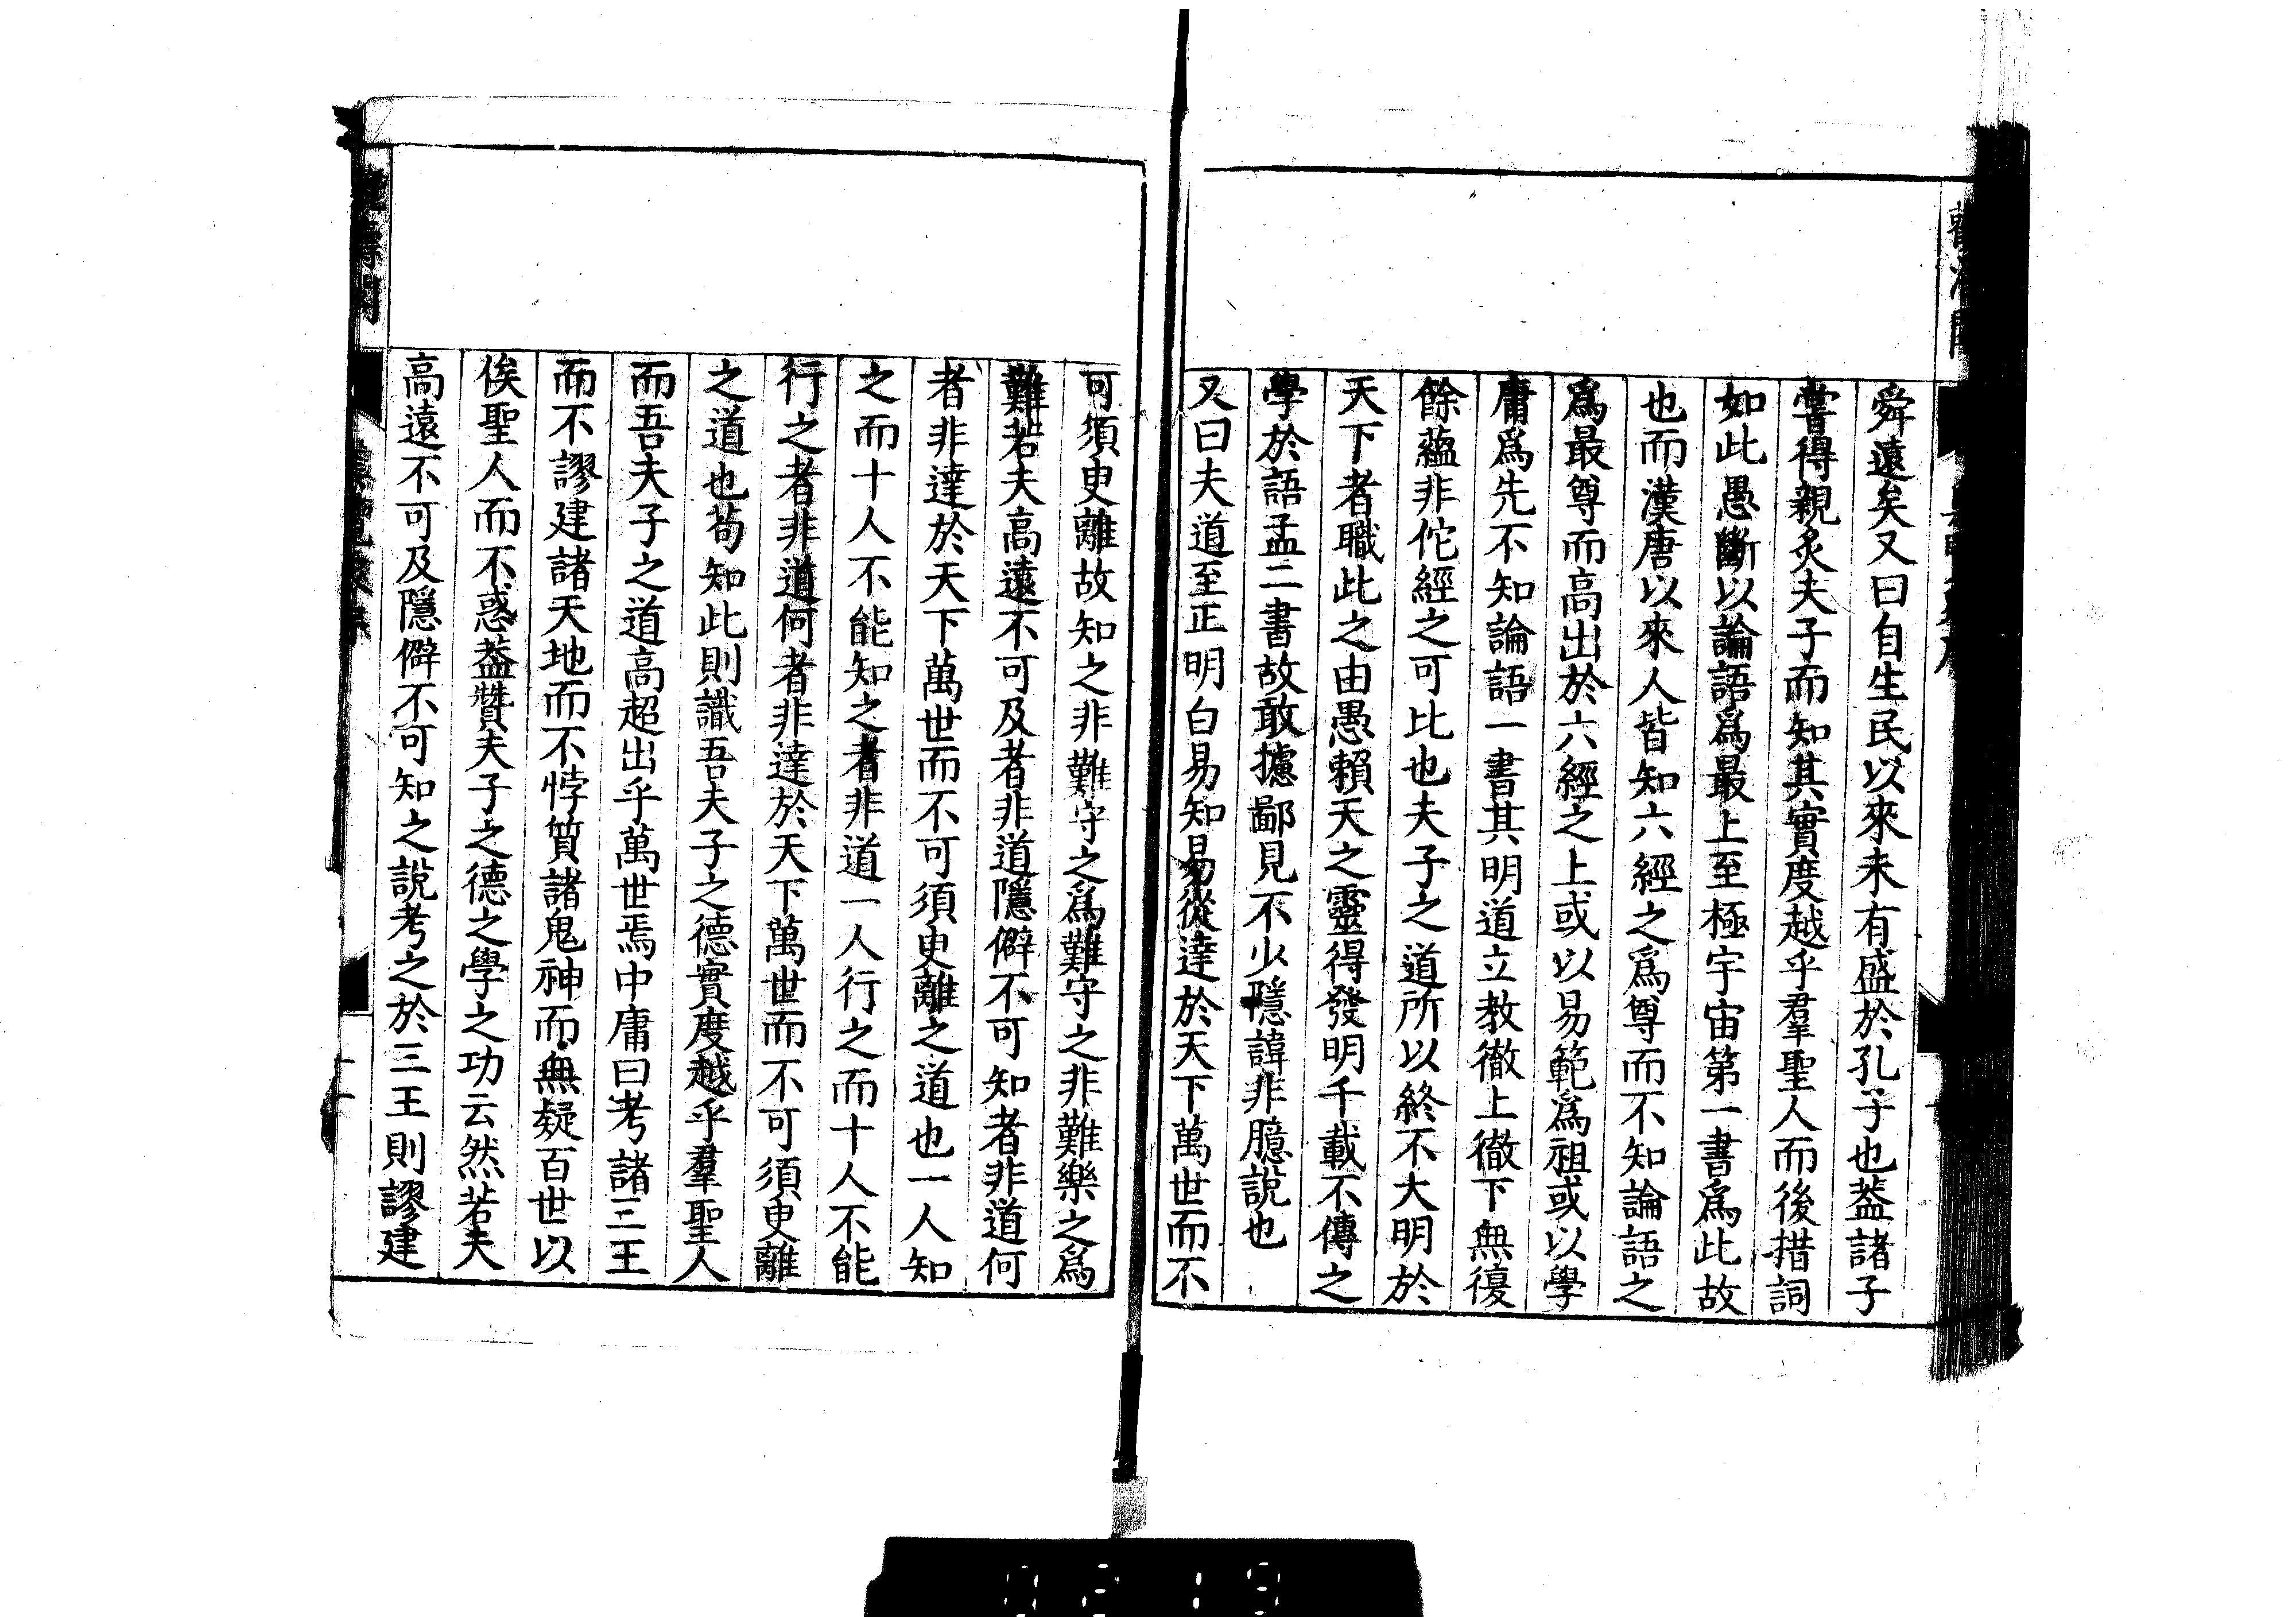 舜遠矣又曰自生民以來未有盛於孔子也葢諸子
嘗得親炙夫子而知其實度越乎羣聖人而後措詞
如此愚斷以論語爲最上至極宇宙第一書爲此故
也而漢唐以來人皆知六經之爲尊而不知論語之
爲最尊而高出於六經之上或以易範爲祖或以學
庸爲先不知論語一書其明道立教徹上徹下無復
餘蘊非佗經之可比也夫子之道所以終不大明於
天下者職此之由愚賴天之靈得發明千載不傳之
學於語孟二書故敢攄鄙見不少隱諱非臆說也
又曰夫道至正明白易知易從達於天下萬世而不
可須臾離故知之非難守之爲難守之非難樂之爲
難若夫高遠不可及者非道隱僻不可知者非道何
者非達於天下萬世而不可須臾離之道也一人知
之而十人不能知之者非道一人行之而十人不能
行之者非道何者非達於天下萬世而不可須臾離
之道也苟知此則識吾夫子之德實度越乎羣聖人
而吾夫子之道高超出乎萬世焉中庸曰考諸三王
而不謬建諸天地而不悖質諸鬼神而無疑百世以
俟聖人而不惑葢贊夫子之德之學之功云然若夫
高遠不可及隱僻不可知之說考之於三王則謬建